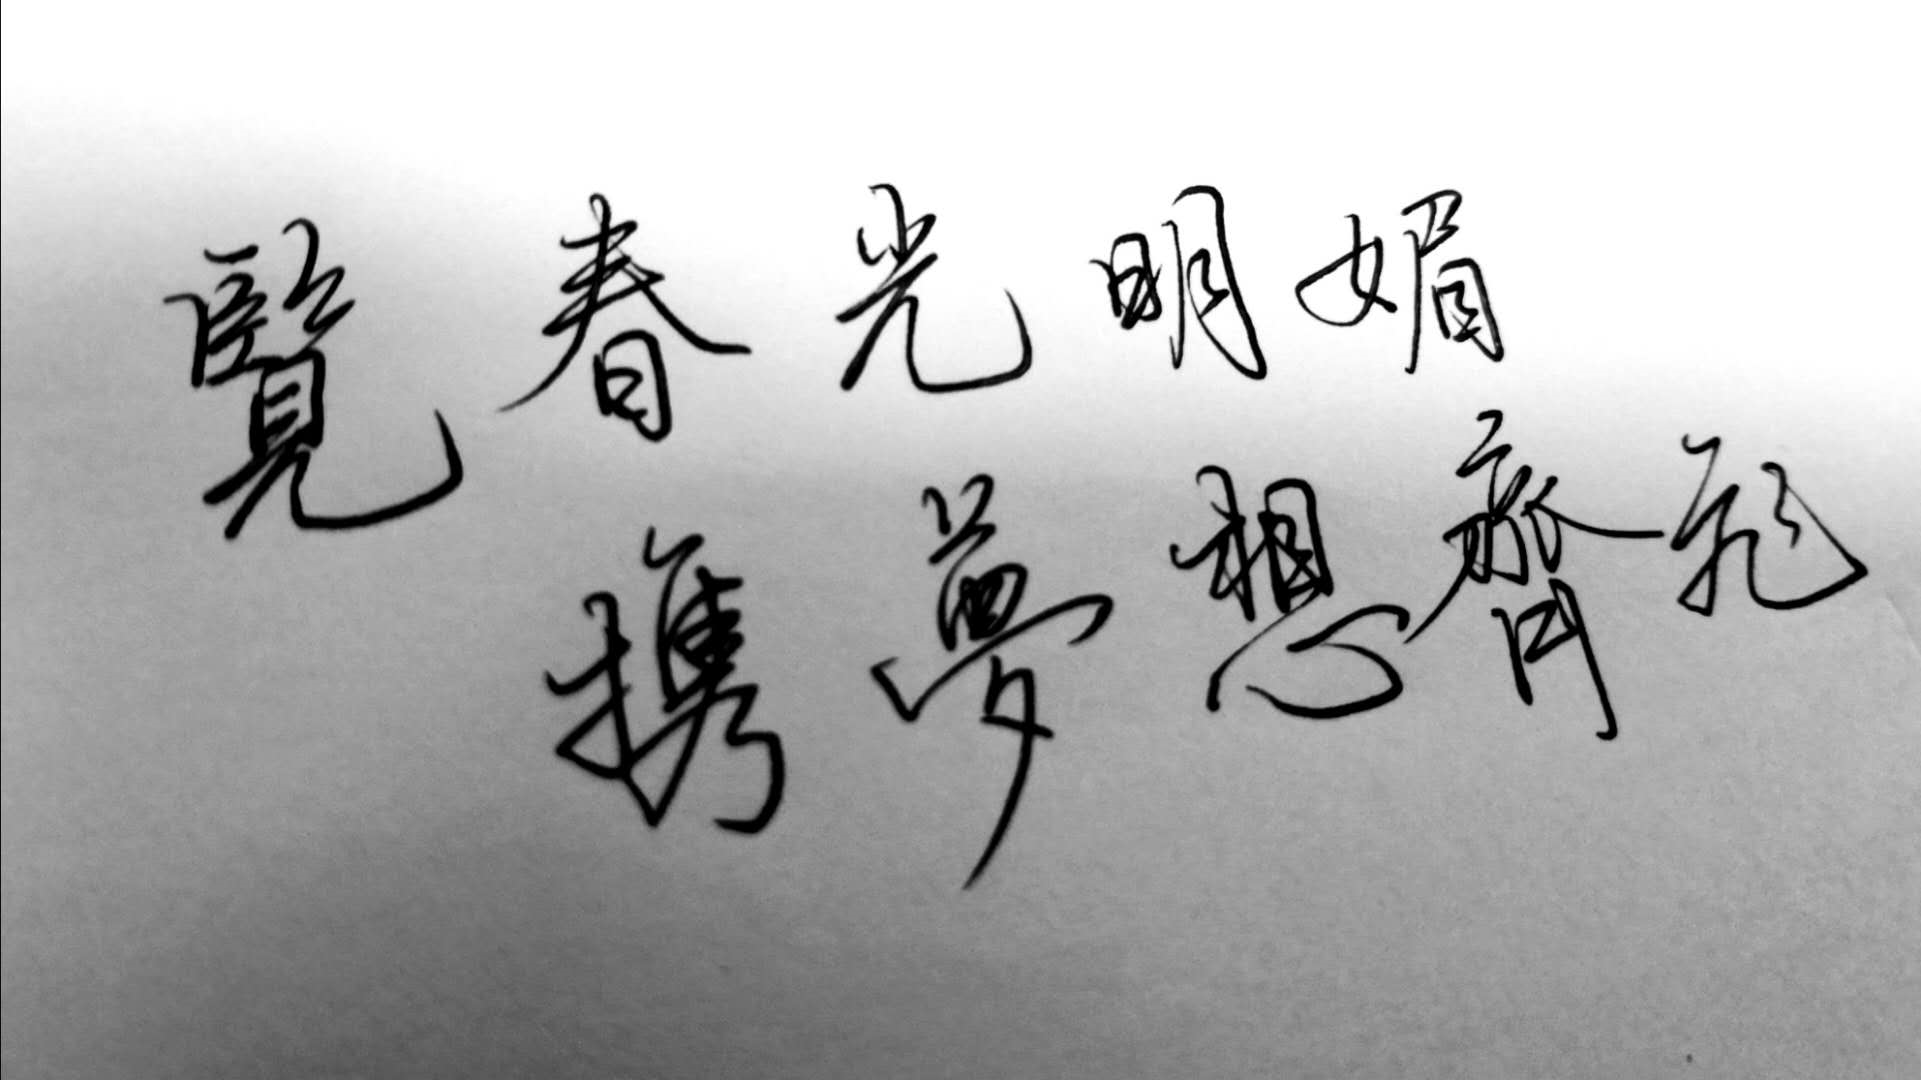 覽春光明媚
攜夢想齊飛